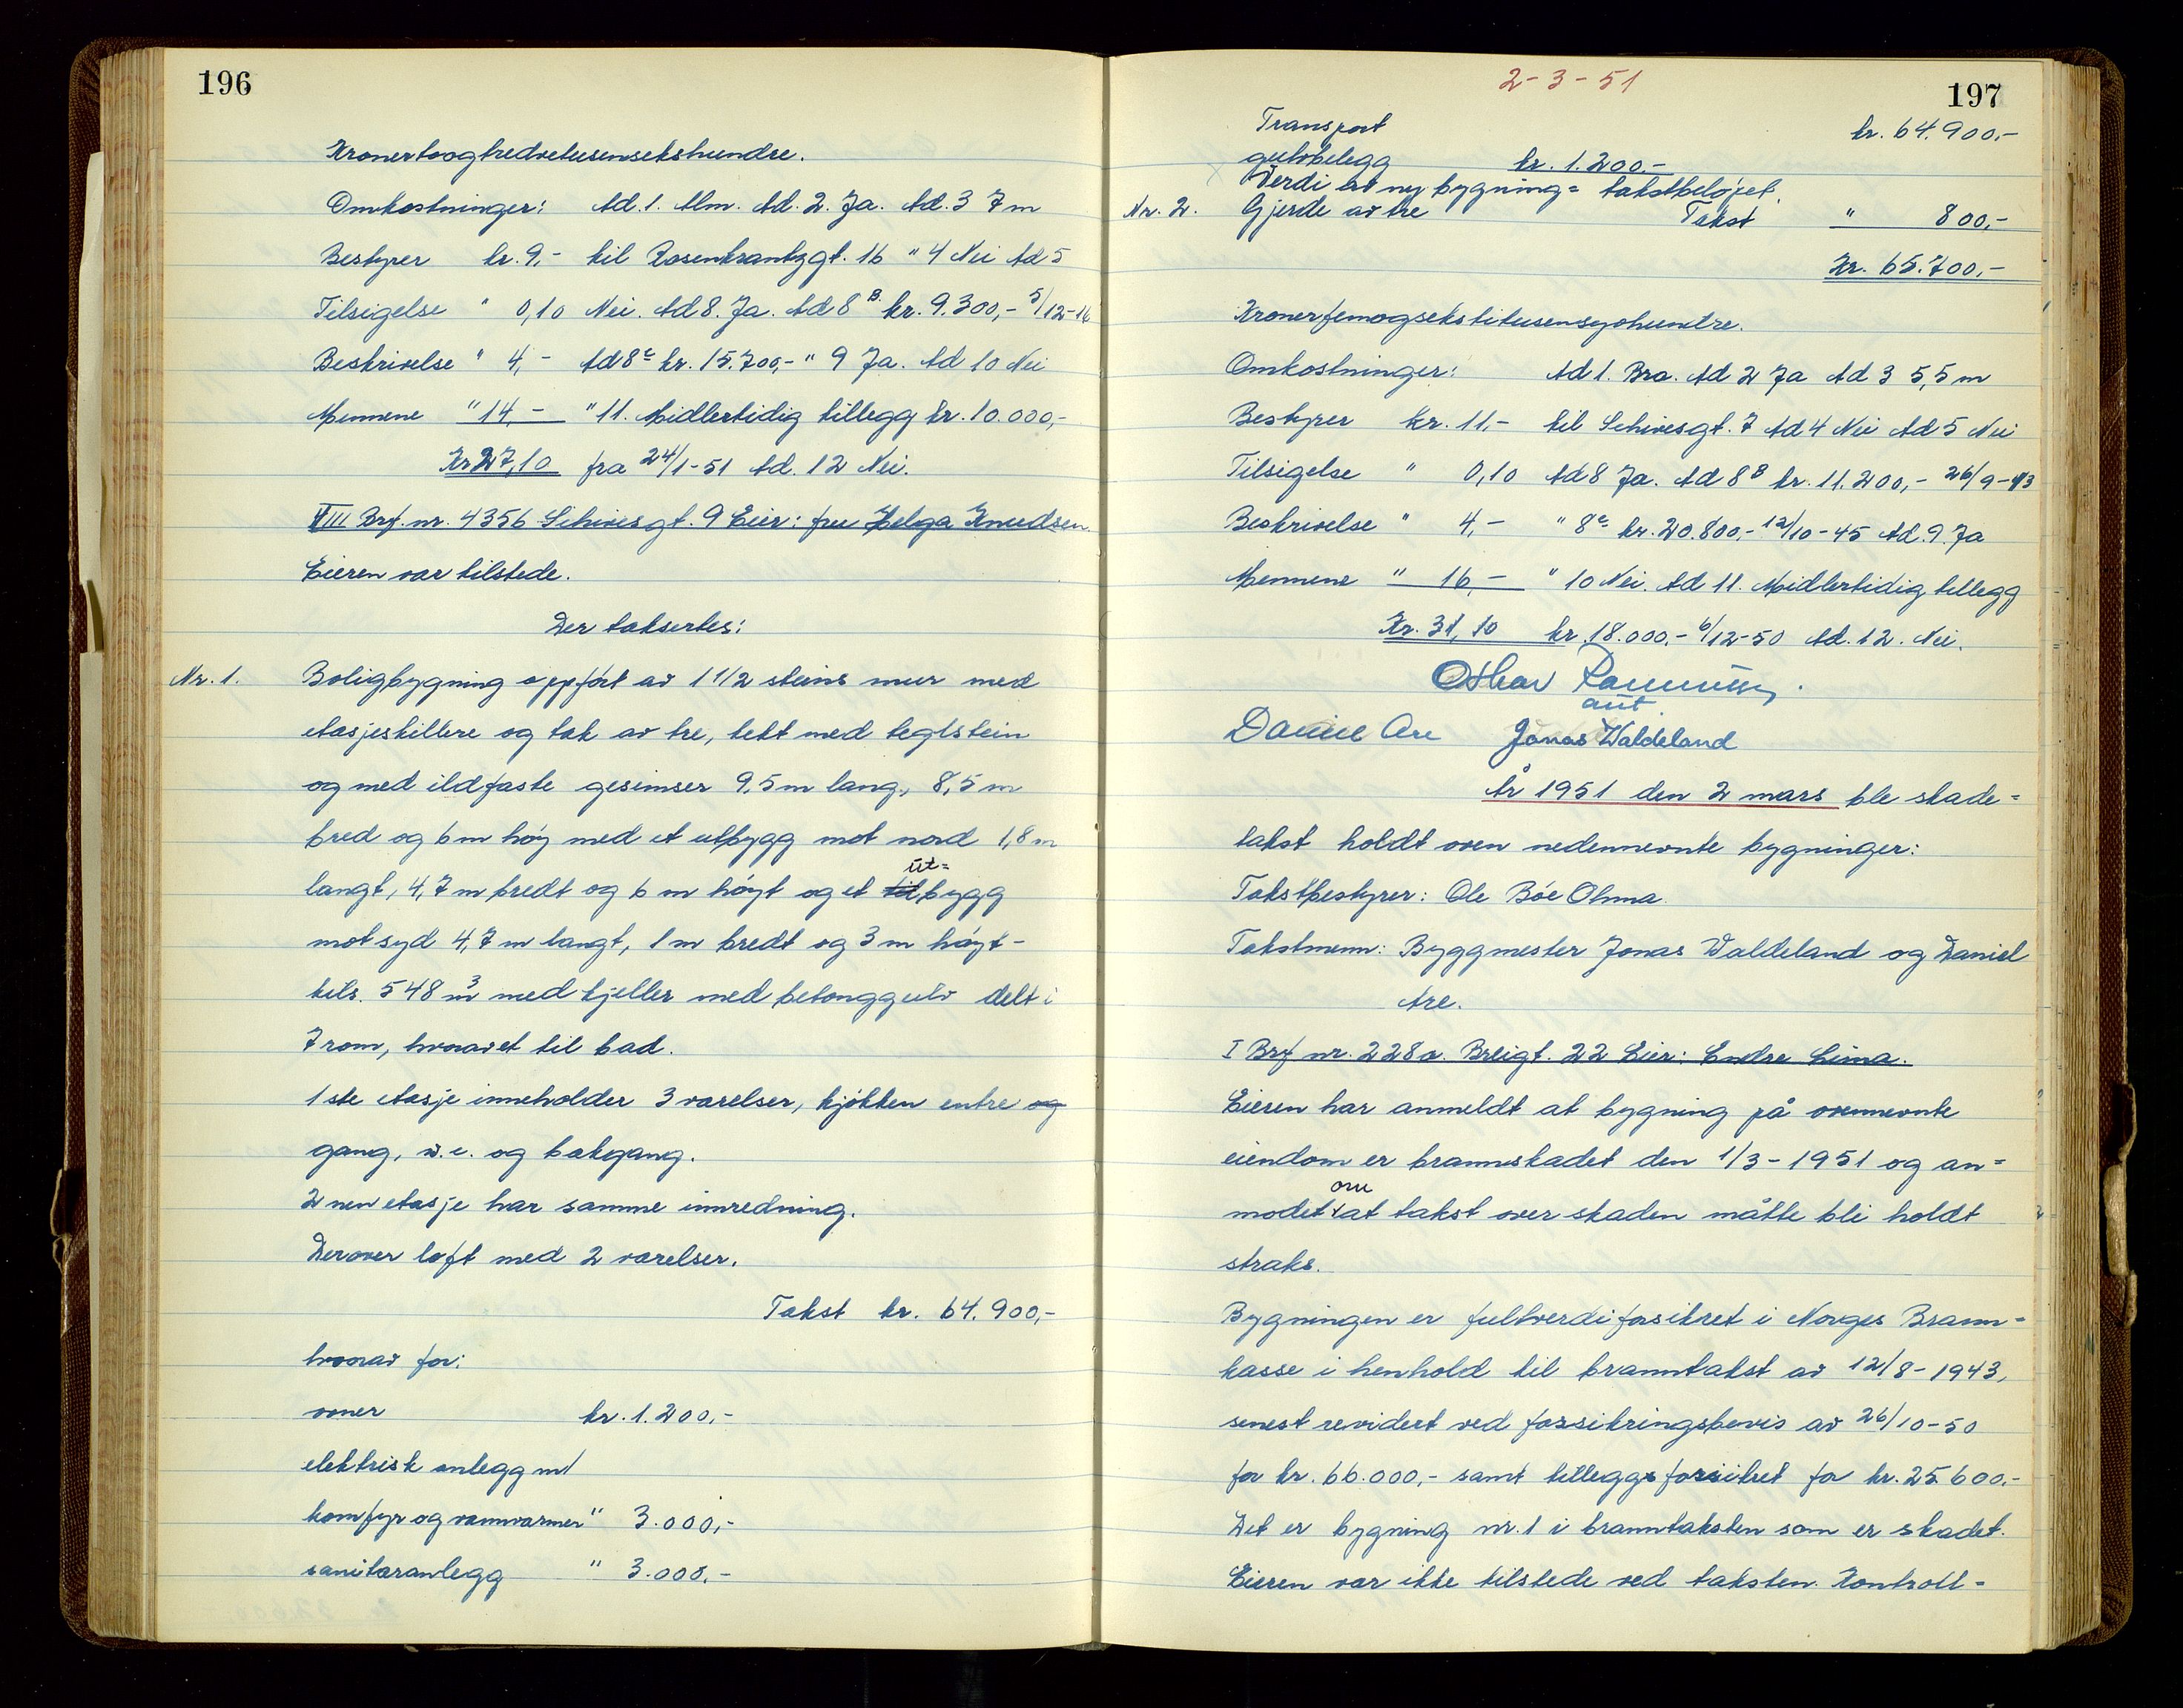 196
Kronertoogtredvetusenseks hundre.
Omkostninger: Ad. 1. Alm. Ad. 2. Ja. Ad. 3 7 m
Bestyrer kr. 9,- til Rosenkrantzgt. 16 " 4 Nei Ad 5
Tilsigelse " 0,10 Nei. Ad 8. Ja. Ad 8 B. kr. 9.300,- 5/12-16
Beskrivelse " 4,- Ad 8 c kr. 15.700,- " 9 Ja. Ad 10 Nei
Mennene " 14,- " 11. Midlertidig tillegg kr. 10.000,-
Kr 27,10 fra 24/1-51 Ad. 12 Nei.
VIII Brf. nr. 4356 Schivesgt. 9 Eier: fru Helga Knudsen.
Eieren var tilstede.
Der taksertes:
Nr. 1. Boligbygning oppført av 1 1/2 steins mur med
etasjeskillere og tak av tre, tekt med teglstein
og med ildfaste gesimser 9,5 m lang, 8,5 m
bred og 6 m høy med et utbygg mot nord 1,8 m
langt, 4,7 m bredt og 6 m høyt og et til ut= bygg
mot syd 4,7 m langt, 1 m bredt og 3 m høyt -
tils. 548 m3 med kjeller med betonggulv delt i
7 rom, hvorav et til bad.
1ste etasje inneholder 3 værelser, kjøkken entre og
gang, w.c. og bakgang.
2nen etasje har samme innredning.
Derover loft med 2 værelser.
Takst kr. 64.900,-
hvorav for:
ovner kr. 1.200,-
elektrisk anlegg m/
komfyr og vannvarmer " 3.000,-
sanitæranlegg " 3.000,-
2-3-51
197
Transport kr. 64.900,-
gulvbelegg kr. 1.200,-
Verdi av ny bygning = takstbeløpet.
Nr. 2. Gjerde av tre Takst " 800,-
Kr. 65.700,-
Kronerfemogsekstitusensyvhundre.
Omkostninger: Ad 1. Bra. Ad 2 Ja Ad 3 5,5 m
Bestyrer kr. 11,- til Schivesgt. 7 Ad 4 Nei Ad 5 Nei
Tilsigelse " 0,10 Ad 8 Ja. Ad 8 B kr. 11.200,- 26/9-43
Beskrivelse " 4,- " 8 c kr. 20.800,- 12/10-45 Ad. 9. Ja
Mennene " 16,- " 10 Nei. Ad 11. Midlertidig tillegg
Kr. 31,10 kr. 18.000,- 6/12-50 Ad. 12. Nei.
Othar Rasmussen
aut
Daniel Are Jonas Waldeland
År 1951 den 2 mars ble skade=
takst holdt over nedennevnte bygninger:
Takstbestyrer: Ole Bøe Ohma
Takstmenn: Byggmester Jonas Waldeland og Daniel
Are.
I Brf nr. 228a. Breigt. 22 Eier: Endre Lima.
Eieren har anmeldt at bygning på ovennevnte
eiendom er brannskadet den 1/3-1951 og an=
modet om at takst over skaden måtte bli holdt
straks.
Bygningen er fullverdiforsikret i Norges Brann=
kasse i henhold til branntakst av 12/8-1943,
senest revidert ved forsikringsbevis av 26/10-50
for kr. 66.000,- samt tilleggsforsikret for kr. 25.600,-
Det er bygning nr. 1 i branntaksten som er skadet.
Eieren var ikke tilstede ved taksten. Kontroll=